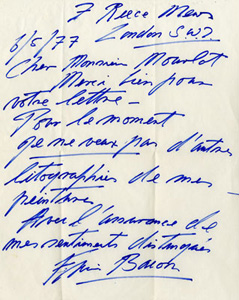 7 Reece Mews
London S.W.7
6/6/77
Cher Monsieur Mourlot
Merci bien pour
votre lettre –
Pour le moment
je ne veux pas d'autres
litographies de mes
peintures
Avec l'assurance de
mes sentiments distingués
Francis Bacon